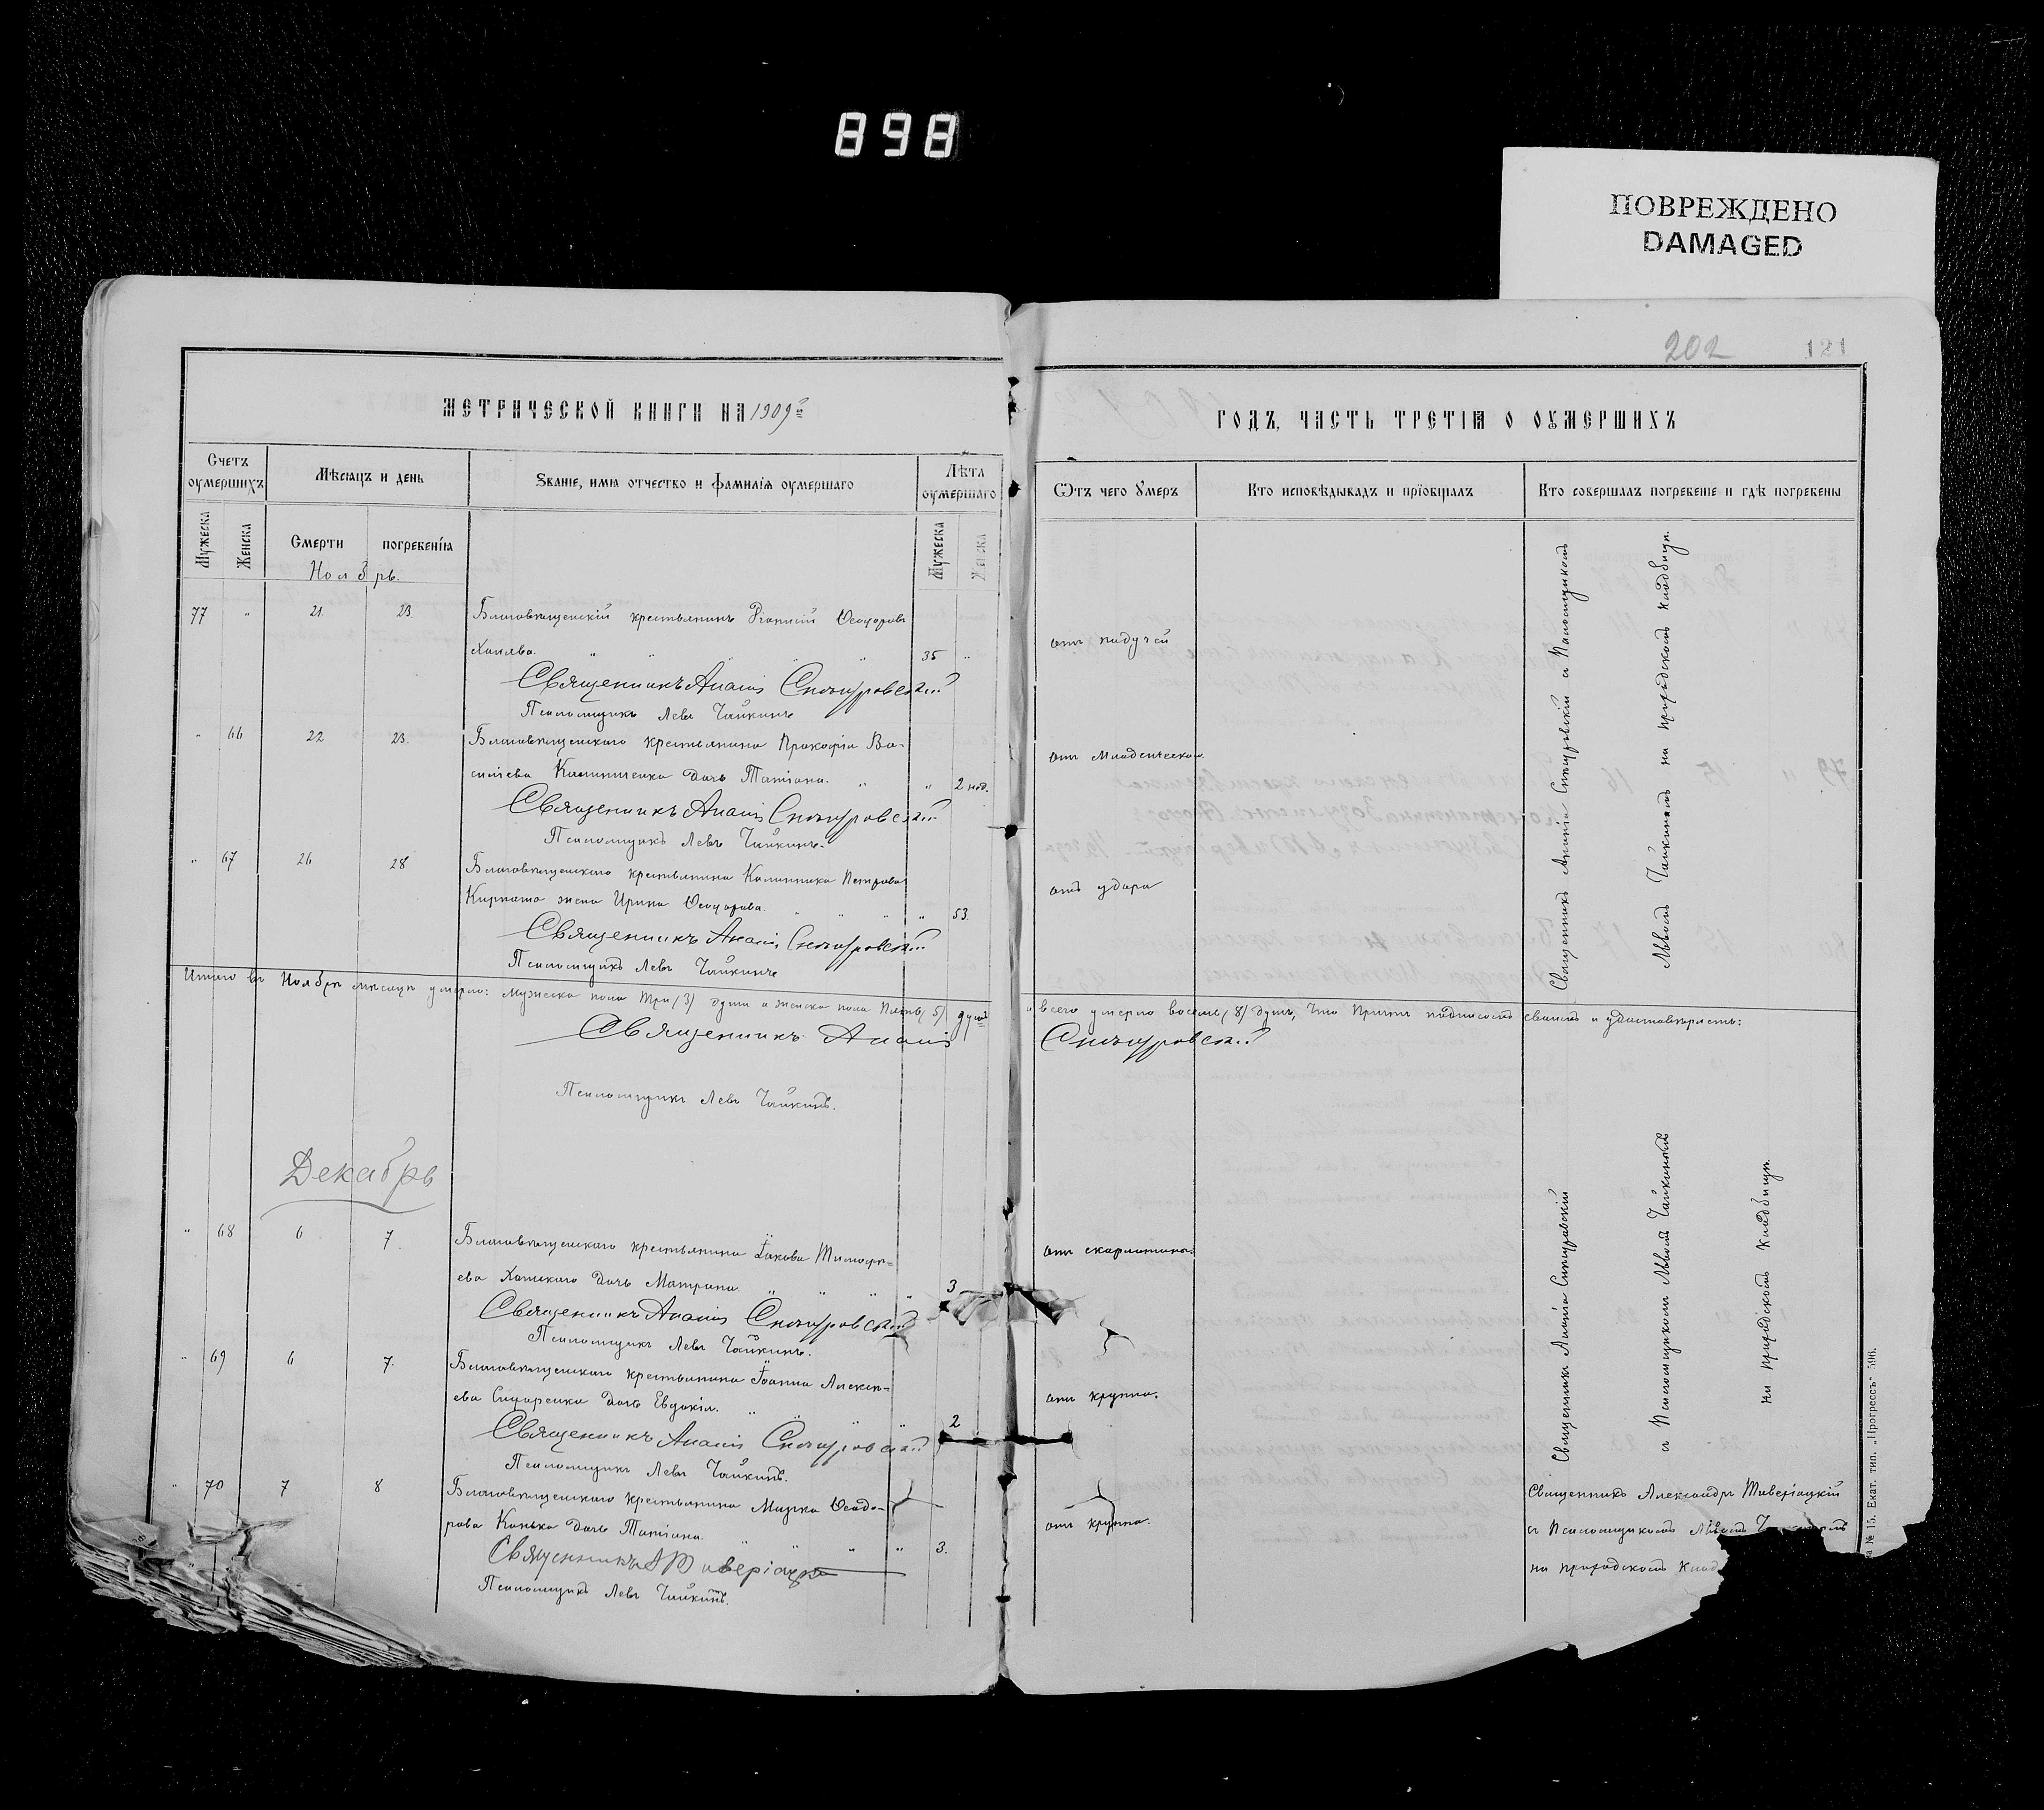 898
ПОВРЕЖДЕНО
DAMAGED
202 121
МЕТРИЧЕСКОЙ КНИГИ НА 1909й
ГОДЪ, ЧАСТЬ ТРЕТІЯ О ОУМЕРШИХЪ
Счетъ оумершихъ
Мѣсяцъ и день
Званіе, имя отчество и фамилія оумершаго
Лѣта оумершаго
Отъ чего умеръ
Кто исповѣдывалъ и пріобщалъ
Кто совершалъ погребеніе и гдѣ погребены
Мужеска
Женска
Смерти
погребенія
Мужеска
Женска
Ноябрь.
77 " 21 23 Благовѣщенскій крестьянинъ Ѳеодоровъ
35 " отъ падучей
Священникъ Ананій
Псаломщикъ Левъ Чайкинъ
" 66 22 23. Благовѣщенскаго крестьянина Прокофія Ва-
сильева Калиниченка дочь Татіана. " 2 нед. отъ младенческой
Священникъ Ананій
Псаломщикъ Левъ Чайкинъ.
" 67 26 28 Благовѣщенскаго крестьянина Каллиника Петрова
жена Ирина Ѳеодорова. " 53. отъ удара
Священникъ Ананій
Псаломщикъ Левъ Чайкинъ
Священникъ Ананія съ Псаломщикомъ
Львомъ Чайкинымъ на приходскомъ кладбищѣ.
Итого въ Ноябрѣ мѣсяцѣ умерло: мужеска пола три (3) души а женска пола пять (5) душъ
а всего умерло восемь (8) душъ, что причтъ подписомъ своимъ и удостовѣряетъ:
Священникъ Ананій
Псаломщикъ Левъ Чайкинъ.
Декабрь
" 68 6 7. Благовѣщенскаго крестьянина Іакова Тимофѣ=
ева дочь Матрона. " 3 отъ скарлатины.
Священникъ Ананій
Псаломщикъ Левъ Чайкинъ.
" 69 6 7. Благовѣщенскаго крестьянина Іоанна Алексѣ=
ева Сидоренка дочь Евдокія. " 2 отъ крупа.
Священникъ Ананій
Псаломщикъ Левъ Чайкинъ.
Священникъ Ананія
съ Псаломщикомъ Львомъ Чайкинымъ
на приходскомъ кладбищѣ.
" 70 7 8 Благовѣщенскаго крестьянина Марка Ѳеодо-
рова Конька дочь Татіана. " 3. отъ крупа.
Священникъ А Тиверіацкій
Псаломщикъ Левъ Чайкинъ.
Священникъ Александръ Тиверіацкій
съ Псаломщикомъ Львомъ
на приходскомъ
№ 15. Екат. тип. „Прогрессъ" 596.